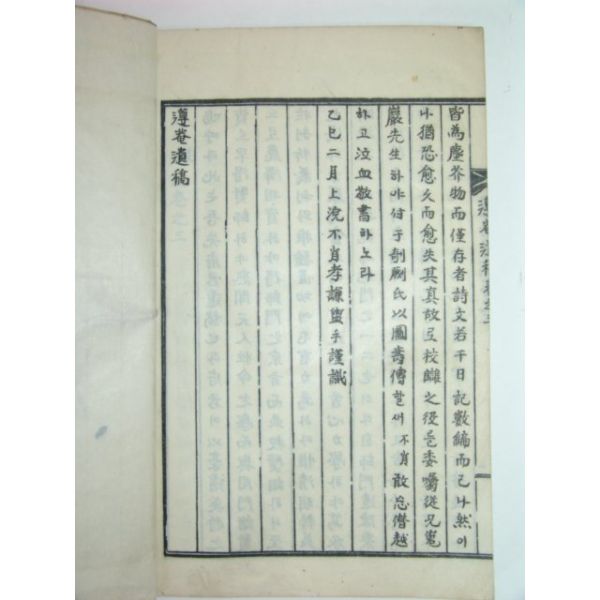 皆為塵芥物而僅存者詩文若干日記數編而已나然이
나猶恐愈久而愈失其真故로校讎之役을委囑從兄嵬
巖先生하야付于剞劂氏以圖壽傳할새不肖敢忘僭越
하고泣血敬書하노라
乙巳二月上浣不肖孝謙盥手謹識
遵菴遺稿